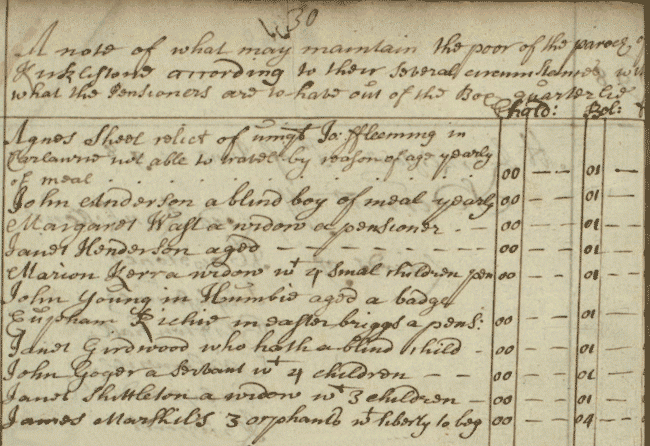 30
A note of what may maintain the poor of the paroch of
Kirklistone according to their several circumstances wit
what the Pensioners are to have out of the Box quarterlie
Chald: Bol:
Agnes Sheel relict of umqll Jo: ffleeming in
Carlawrie not able to travel by reason of age yearly
of meal . . . . . . . 00 — — 01 —
John Anderson a blind boy of meal yearly 00 — — 01 — —
Margaret Wast a widow a pensioner — — 00 — — 01 — —
Janet Henderson aged — — — — — — 00 — — 01 — —
Marion Kerr a widow wt 4 small children pen 00 — — 01 — —
John Young in Humbie aged a badge
Eupham Richie in easter briggs a pens: 00 — — 01 — —
Janet Girdwood who hath a blind child — 00 — — 01 — —
John Goger a servant wt 4 children — — 00 — — 01 — —
Janet Shittleton a widow wt 3 children — 00 — — 01 — —
James Marshils 3 orphants wt liberty to beg 00 — — 04 — —